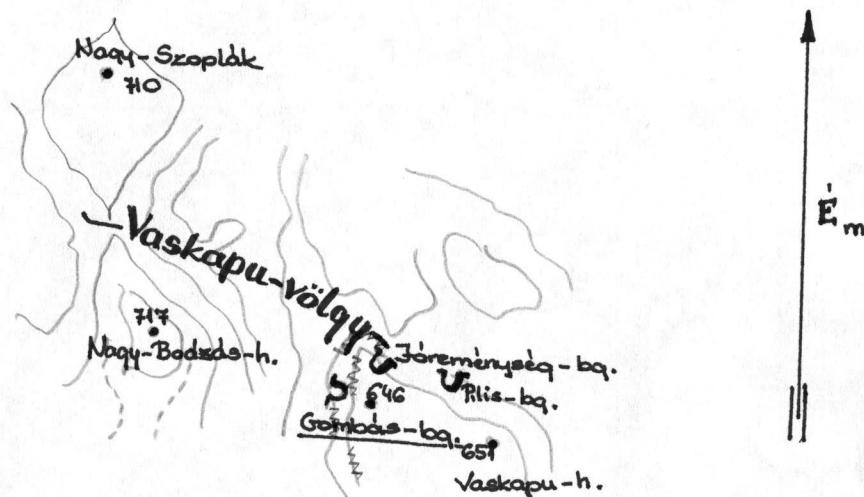 Nagy-Szoplák
710
Vaskapu-völgy
717
Nagy-Bodzás-h.
Jóreménység-bg.
Pilis-bg.
646
Gombás-bg.
651
Vaskapu-h.
É
m